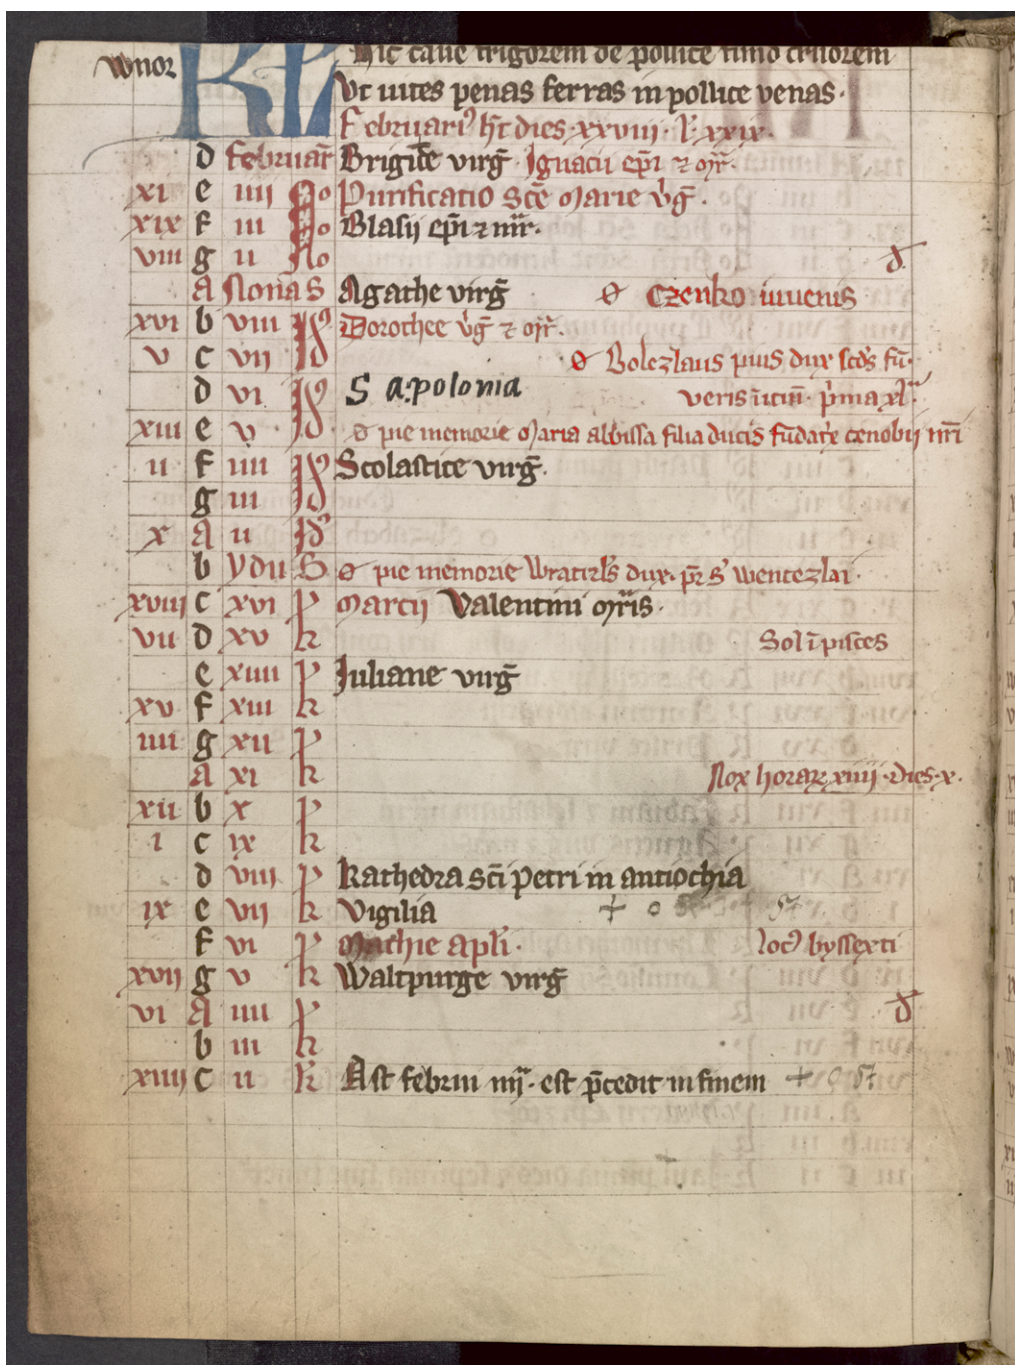 wnor KL Hic caue frigorem de pollice
Vt uites penas ferras in pollice venas.
Februari⁹ h̄t dies xxviii. l̄. xxix.
d februar̄ Brigide virḡ Ignacii ep̄i ⁊ mr̄.
xi e iiii No Purificatio Sc̄e Marie v̓ḡ.
xix f iii No Blasij ep̄i ⁊ mr̄.
viii g ii No d
A Nonas Agathe virḡ o Czenko iuuenis
xvi b viii Id Dorothee v̓ḡ ⁊ mr̄.
v c vii Id o Bolezlaus pius dux sc̄ds fū
d vi Id S apolonia veris p̓ma xl
xiii e v Id o pie memorie Maria abbissa filia ducis fūdatͥx cenobij nr̄i
ii f iiii Id Scolastice virḡ.
g iii Id
x A ii Id
b ydus o pie memorie Wratizl̓s dux. pr̄ s̓ wentezlai.
xviii c xvi k Marcij Valentini mr̄is.
vii d xv k Sol ī pisces
e xiiii k Iuliane virḡ
xv f xiii k
iiii g xii k
a xi k Nox horaꝝ xiiii. dies. x.
xii b x k
i c ix k
d viii k kathedra sc̄i petri in antiochia
ix e vii k Vigilia + o
f vi k Mathie apl̄i. loc⁹ byssexti
xvii g v k Waltpurge virḡ
vi A iiii k d
b iii k
xiiii c ii k Ast februi est p̄cedit in finem +